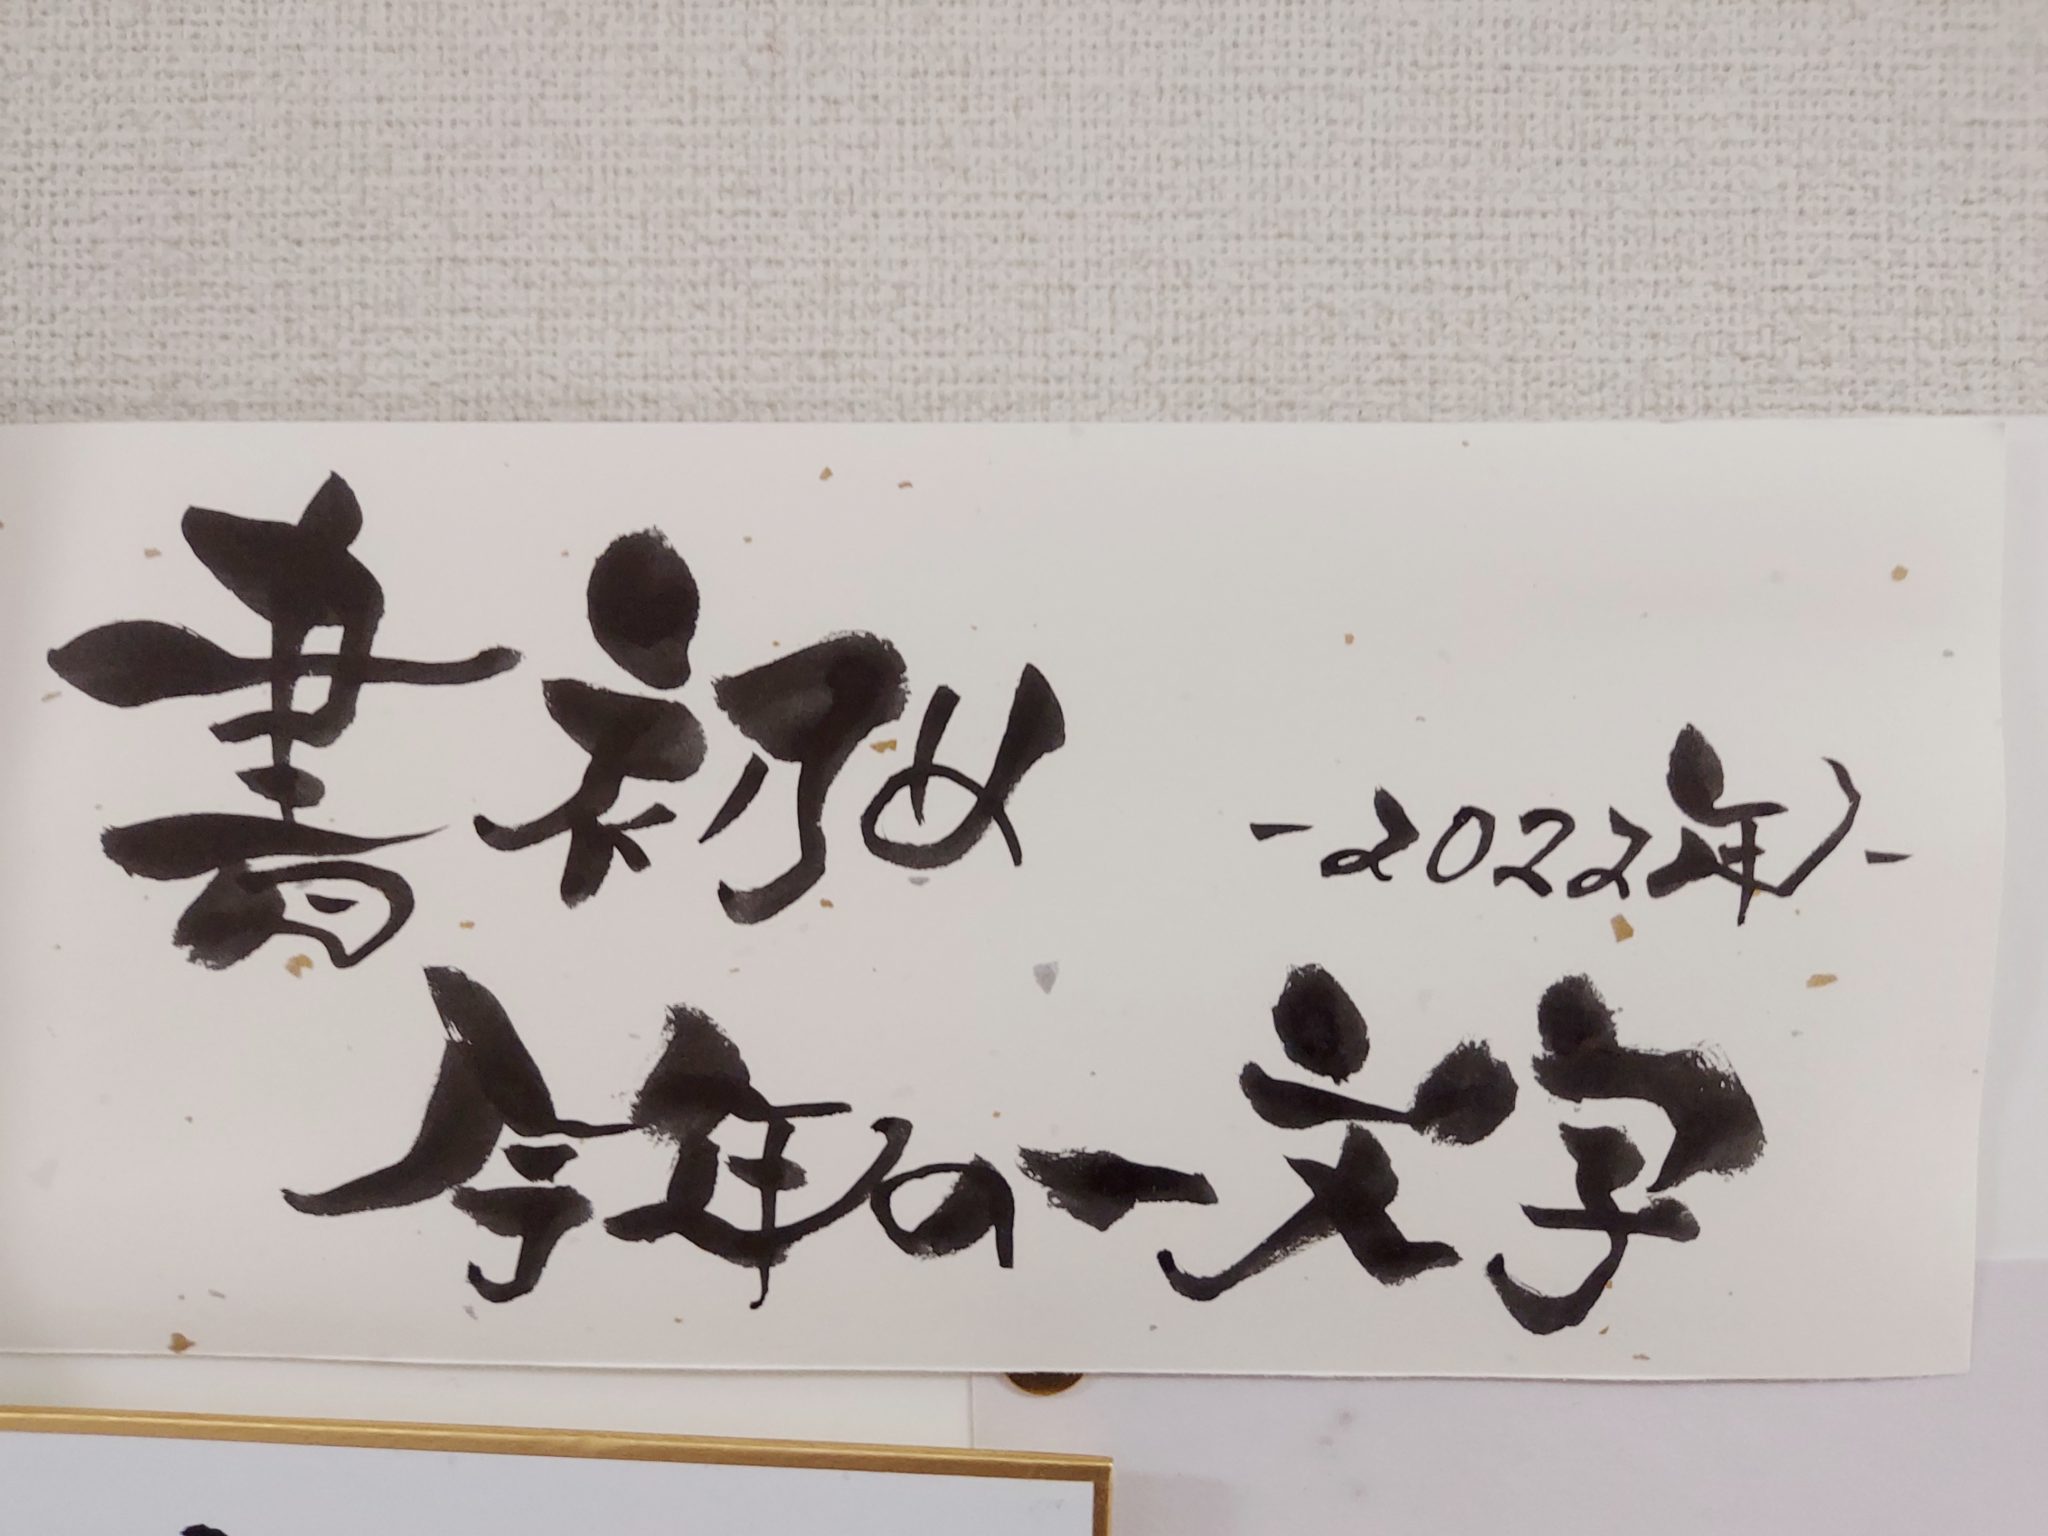 書初め
-2022年-
今年の一文字